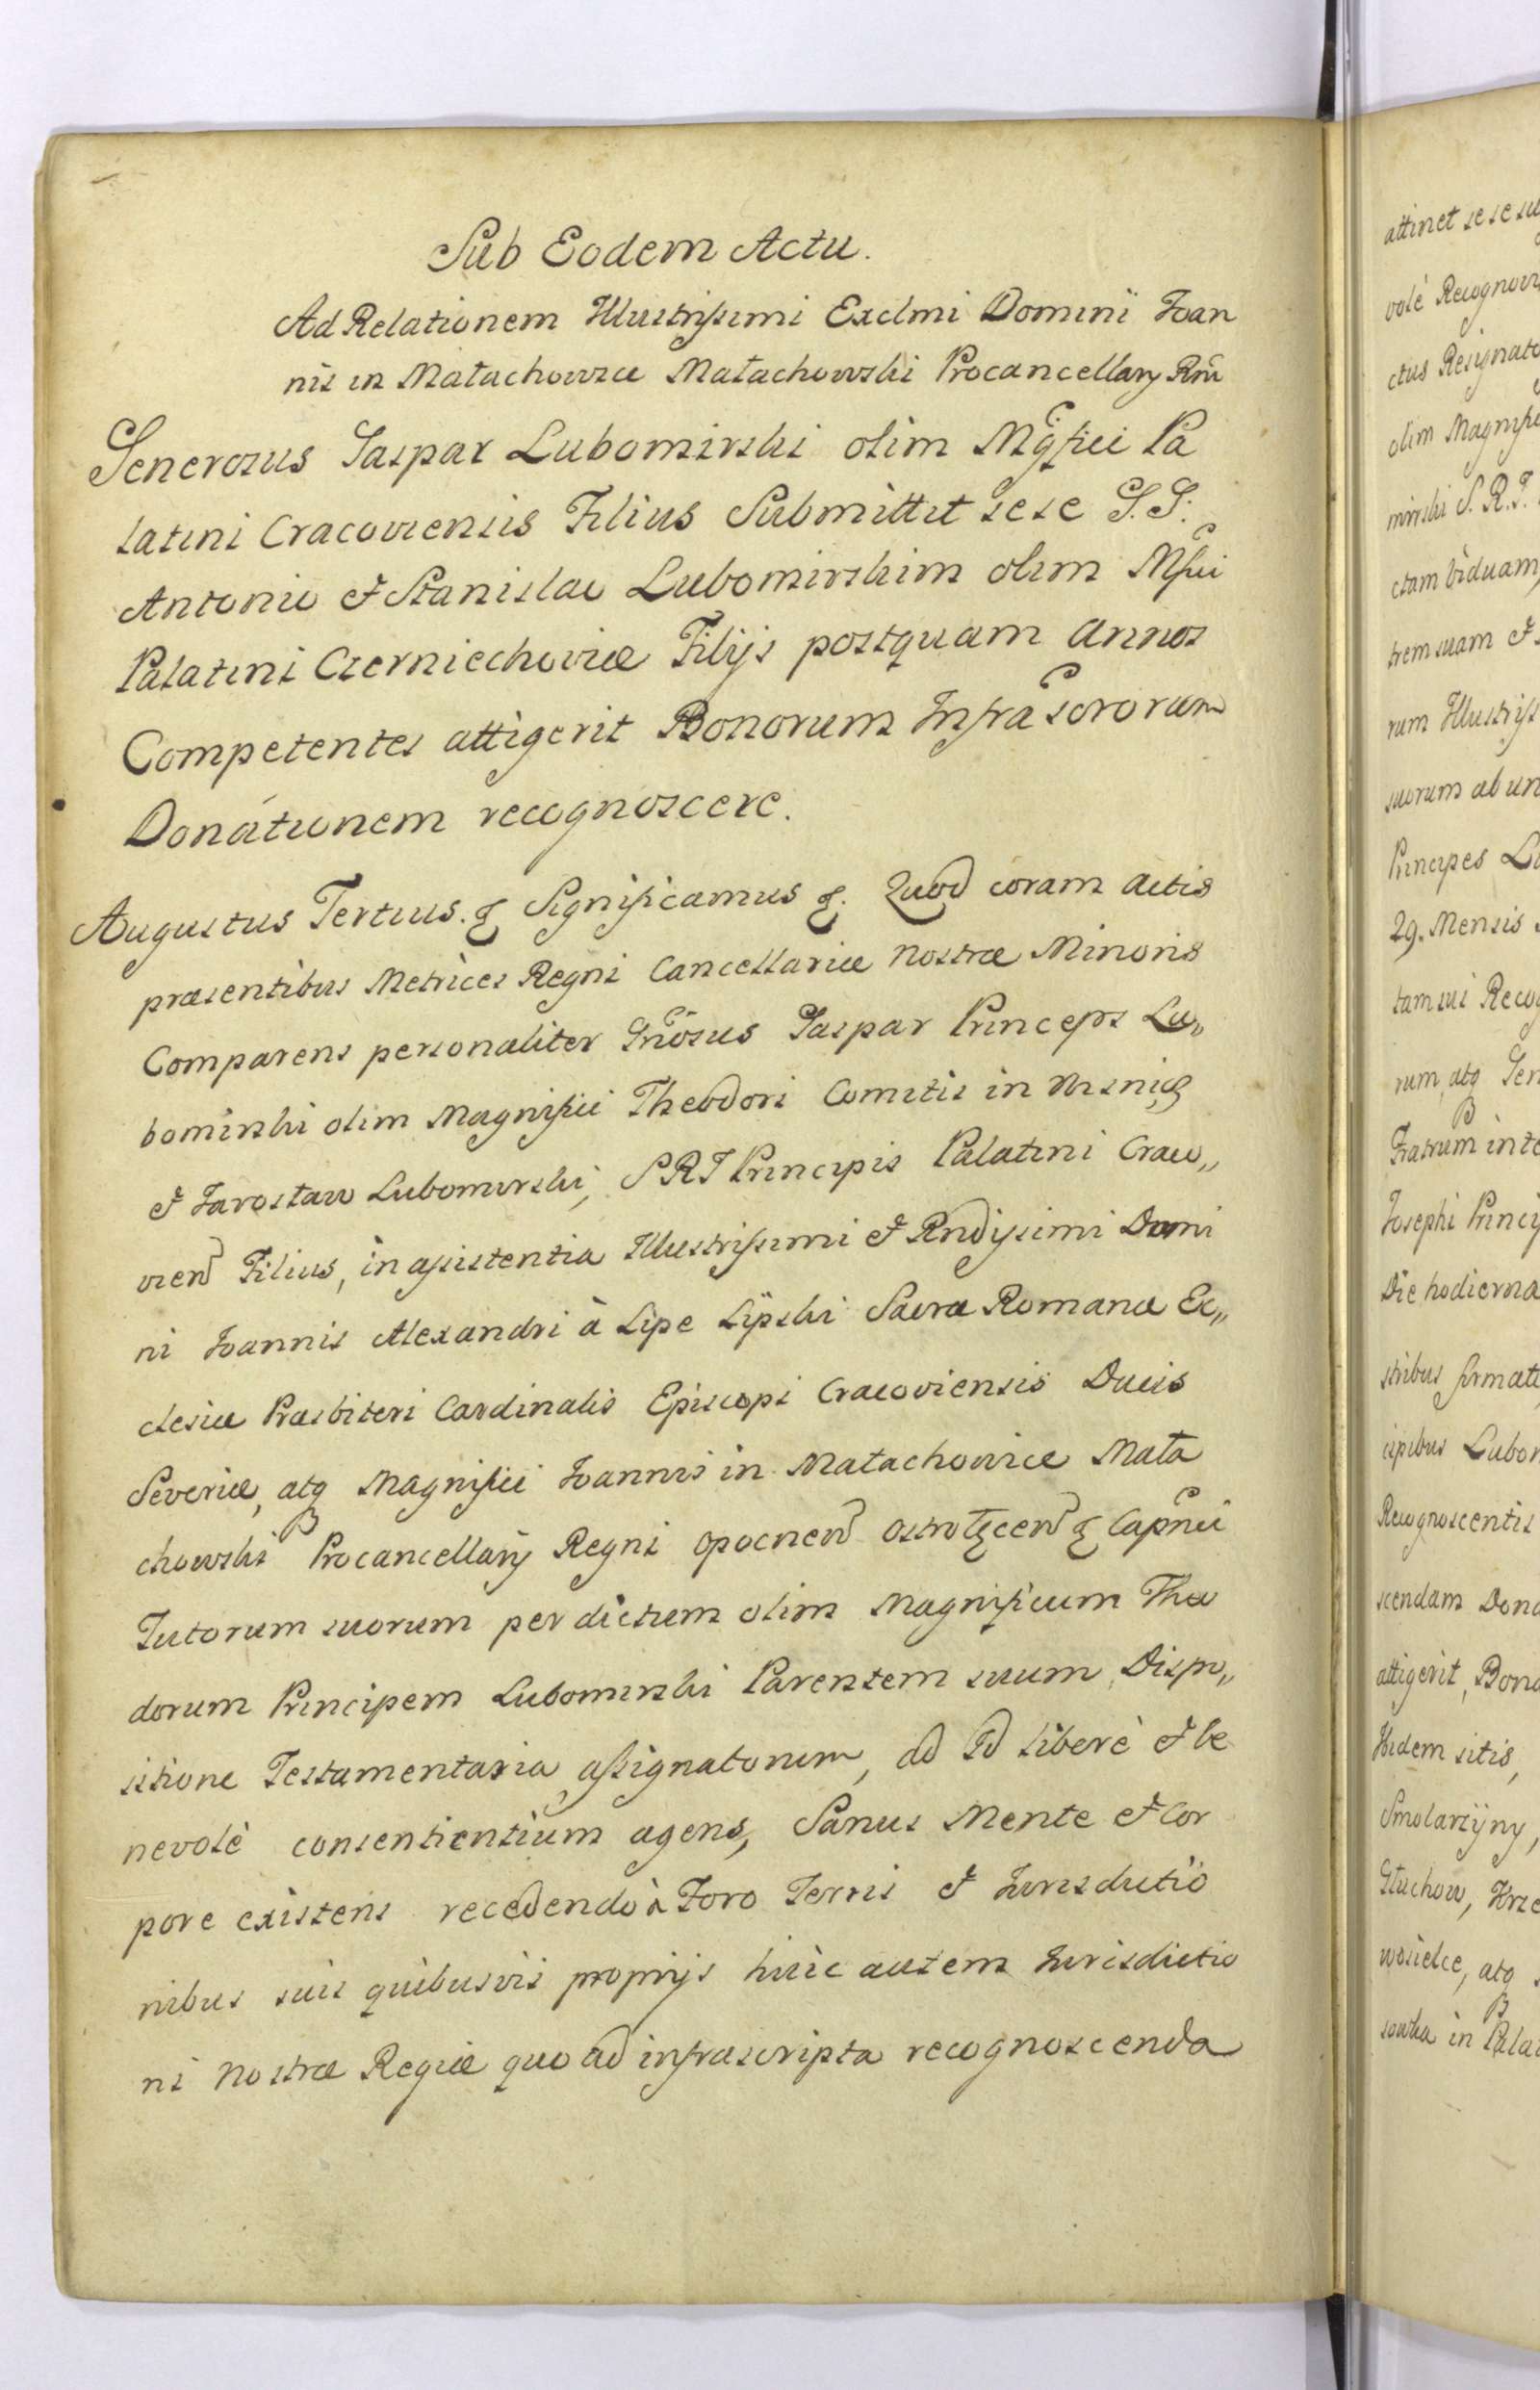 Sub Eodem Actu.
Ad Relationem Illustrissimi Exclmi Domini Joan
nis in Małachowice Małachowski Procancellarÿ Rni
Generosus Gaspar Lubomirski olim Mgfici Pa
latini Cracoviensis Filius Submittit sese G. G.
Antonio et Stanislao Lubomirskim olim Mfici
Palatini Czerniechoviæ Filijs postquam annos
Competentes attigerit Bonorum Infrascrorum
Donationem recognoscere.
Augustus Tertius. & Significamus &. Quod coram Actis
præsentibus Metrices Regni Cancellariæ nostræ Minoris
Comparens personaliter Gnosus Gaspar Princeps Lu„
bomirski olim Magnifici Theodori Comitis in Wisnicz
et Jarosław Lubomirski, SRI Principis Palatini Craco„
vien Filius, in assistentia Illustrissimi et Rndissimi Domi
ni Joannis Alexandri à Lipe Lipski Sacræ Romanæ Ec„
clesiæ Præsbiteri Cardinalis Episcopi Cracoviensis Ducis
Severiæ, atq Magnifici Joannis in Małachowice Mała
chowski Procancellarÿ Regni Opocnen Ostrołęcen & Capnei
Tutorum suorum per dictum olim Magnificum Theo
dorum Principem Lubomirski Parentem suum, Dispo„
sitione Testamentaria assignatorum, ad Id liberè et be
nevolè consentientium agens, Sanus Mente et Cor
pore existens recedendo à Foro Terris et Jurisdictio
nibus suis quibusvis proprijs huic autem Jurisdictio
ni nostræ Regiæ quo ad infrascripta recognoscenda
attinet sese su
volè Recognovi
ctus Resignato
olim Magnific
mirski S. R. I.
ctam viduam,
trem suam et
rum Illustriss
suorum ab un
Principes Lu
29. Mensis
tam sui Recog
rum, atq Gen
Fratrum inte
Josephi Princi
Die hodierna
stribus firmati
cipibus Lubom
Recognoscentis
scendam Dona
attigerit, Bono
Ibidem sitis,
Smolarzÿny,
Głuchow, Krze
wosielce, atq
sowka in Pala